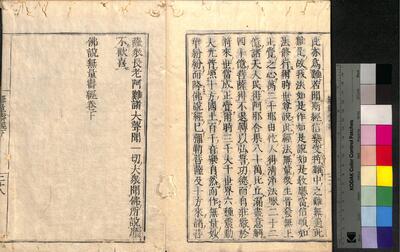 此亦爲難若聞斯經信樂受持難中之難無過此
難是故我法如是作如是說如是教應當信順如
法修行爾時世尊說此經法無量衆生皆發無上
正覺之心萬二千那由他人得清淨法眼二十二
億諸天人民得阿那含果八十萬比丘漏盡意解
四十億菩薩得不退轉以弘誓功德而自莊嚴於
將來世當成正覺爾時三千大千世界六種震動
大光普照十方國土百千音樂自然而作無量妙
華紛紛而降佛說經已彌勒菩薩及十方來諸菩
薩衆長老阿難諸大聲聞一切大衆聞佛所說靡
不歡喜
佛說無量壽經卷下
KODAK Color Control Patches